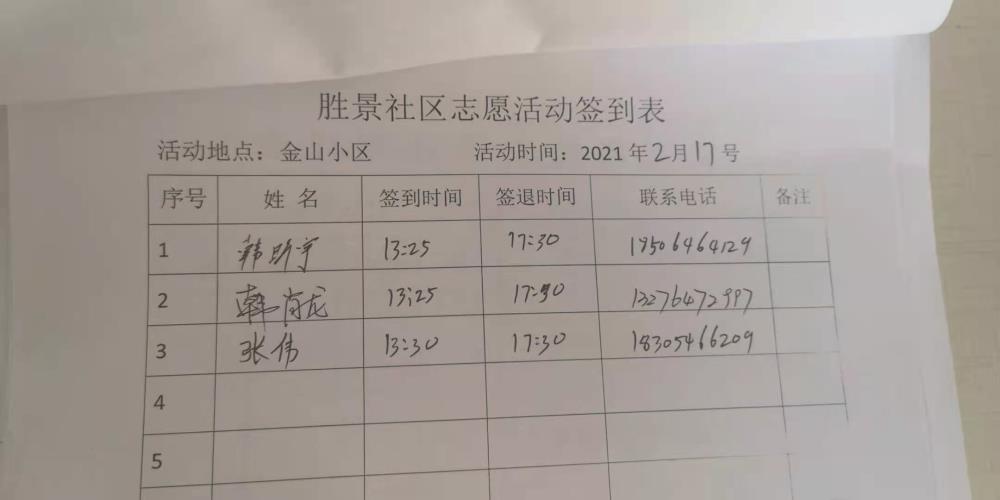 胜景社区志愿活动签到表
活动地点：金山小区 活动时间：2021年2月17号
序号 姓名 签到时间 签退时间 联系电话 备注
1 韩昕宇 13:25 17:30 18506464129
2 韩肖龙 13:25 17:30 13276472997
3 张伟 13:30 17:30 18305466209
4
5